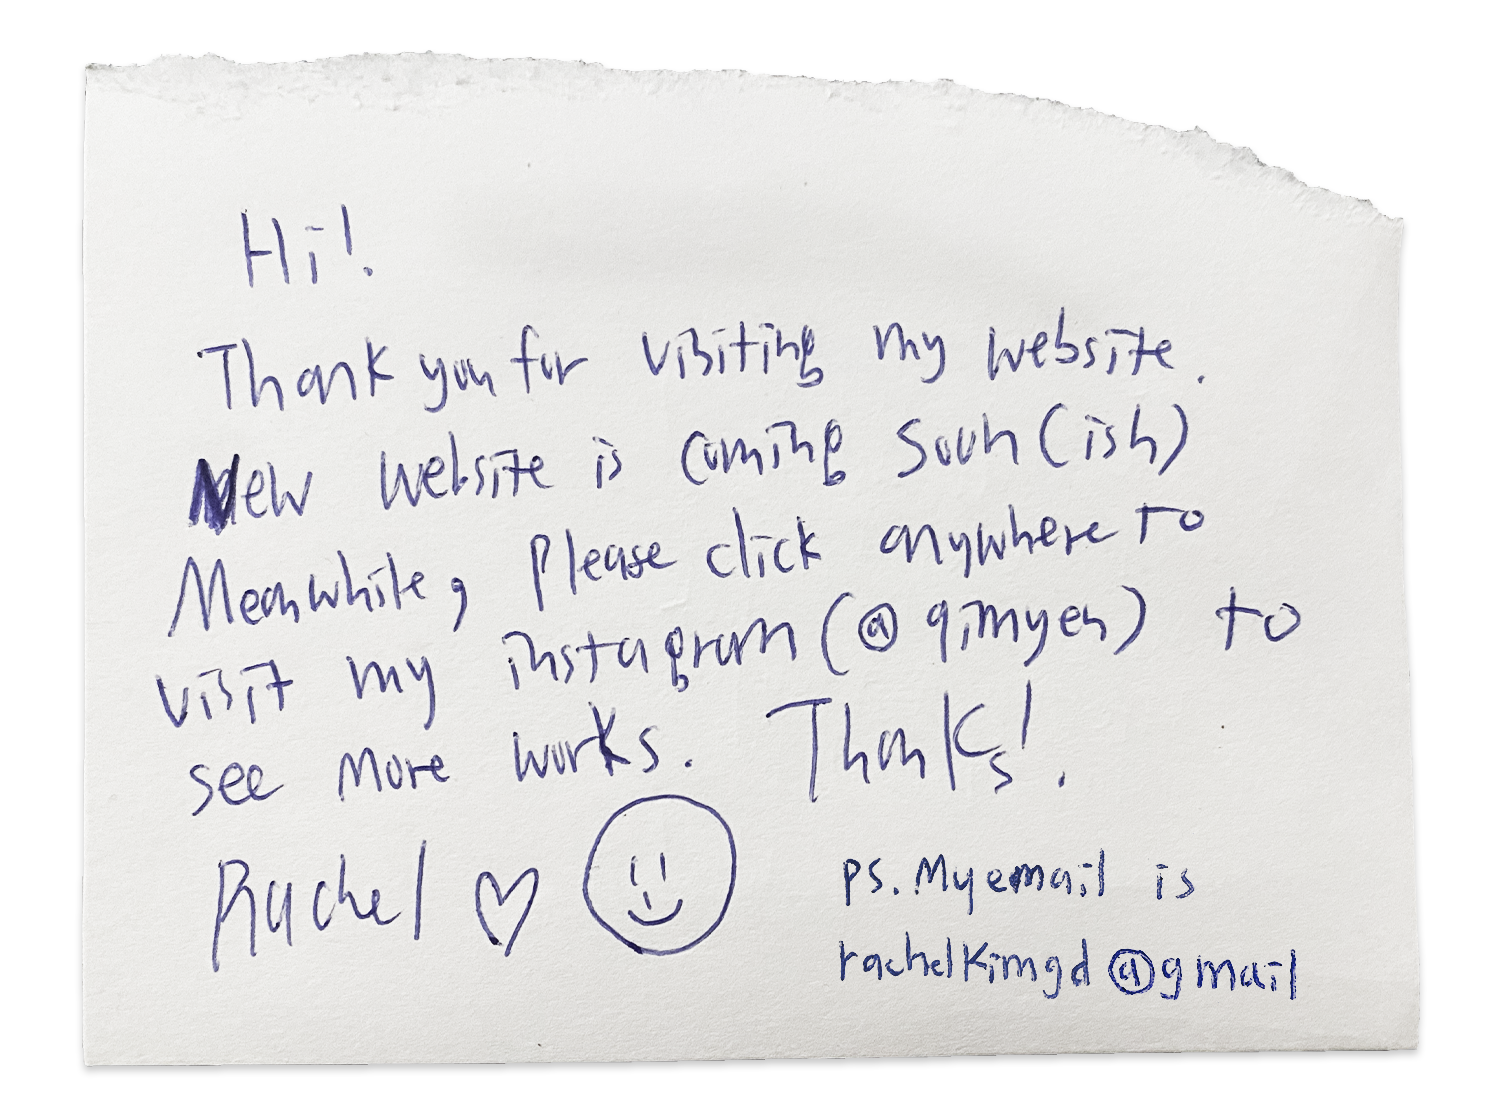 Hi!
Thank you for visiting my website.
New website is coming soon(ish)
Meanwhile, please click anywhere to
visit my instagram (@qimyen) to
see more works. Thanks!
Rachel ♡ 
ps. My email is
rachelkimgd@gmail